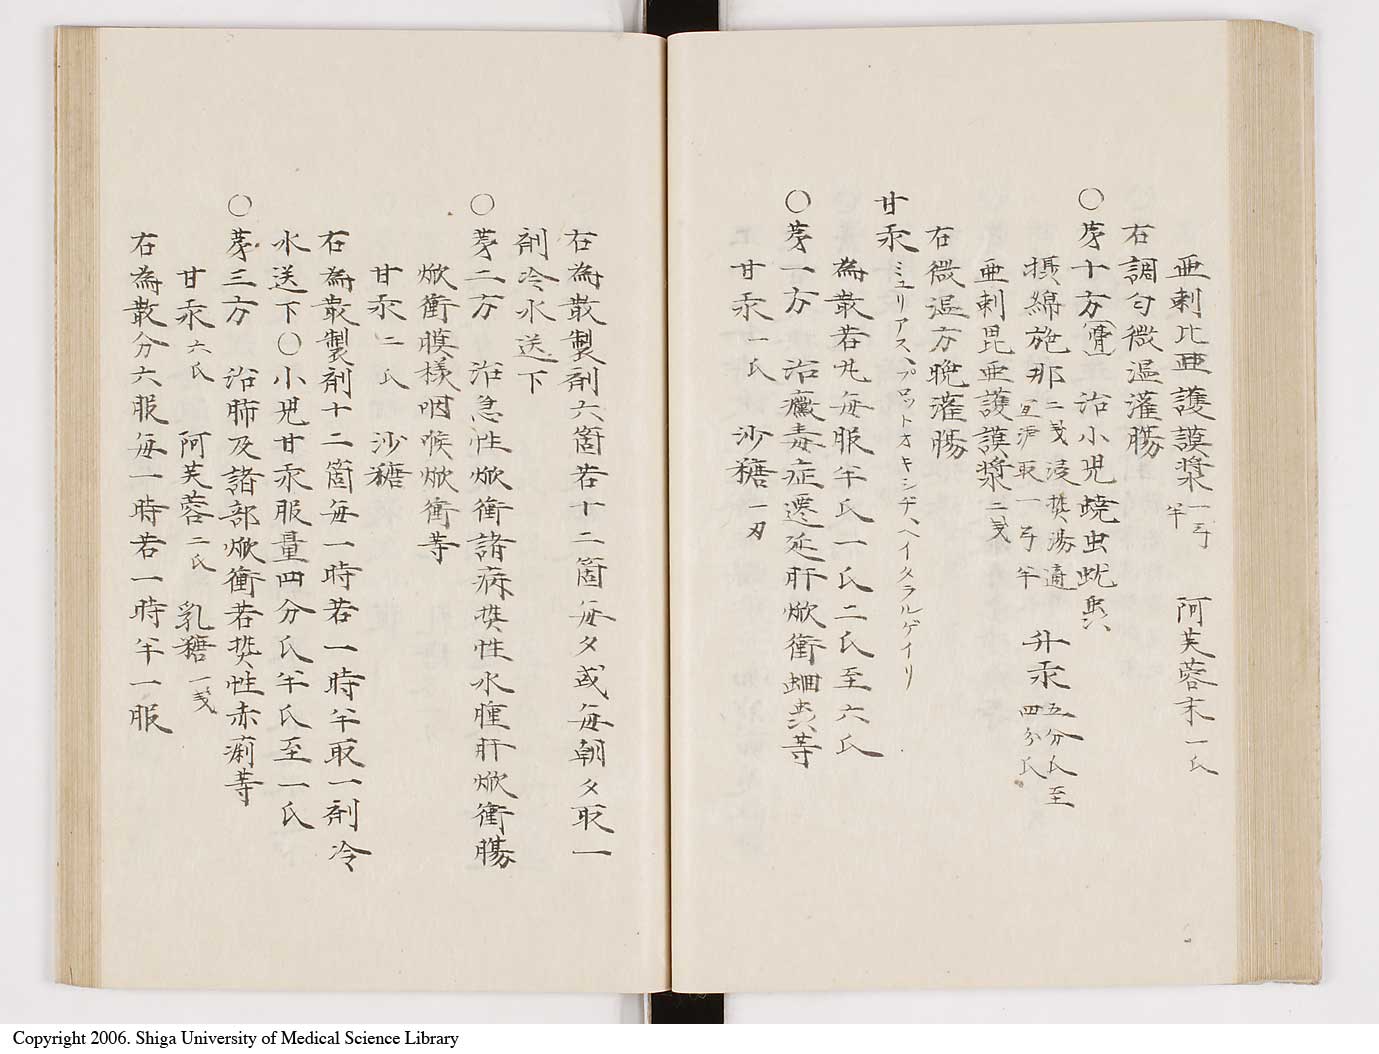 亜剌比亜護謨漿一弓半 阿芙蓉末一氏
右調匀微温灌腸
〇第十方 治小児蟯虫蚘虫
摂綿施那二戔浸熱湯適宜濾取一弓半 升汞五分氏至四分氏
亜剌毘亜護謨漿二戔
右微温方晩灌腸
甘汞ミュリアス、プロットオキシヂ、ヘイタラルゲイリ
為散若丸毎服半氏一氏二氏至六氏
〇第一方 治黴毒症遷延肝焮衝蛔虫等
甘汞一氏 沙糖一刃
右為散製剤六箇若十二箇毎夕或毎朝夕取一
剤冷水送下
〇第二方 治急性焮衝諸病熱性水腫肝焮衝腸
焮衝膜様咽喉焮衝等
甘汞二氏 沙糖
右為散製剤十二箇毎一時若一時半取一剤冷
水送下〇小児甘汞服量四分氏半氏至一氏
〇第三方 治肺及諸部焮衝若熱性赤痢等
甘汞六氏 阿芙蓉二氏 乳糖一戔
右為散分六服毎一時若一時半一服
Copyright 2006. Shiga University of Medical Science Library